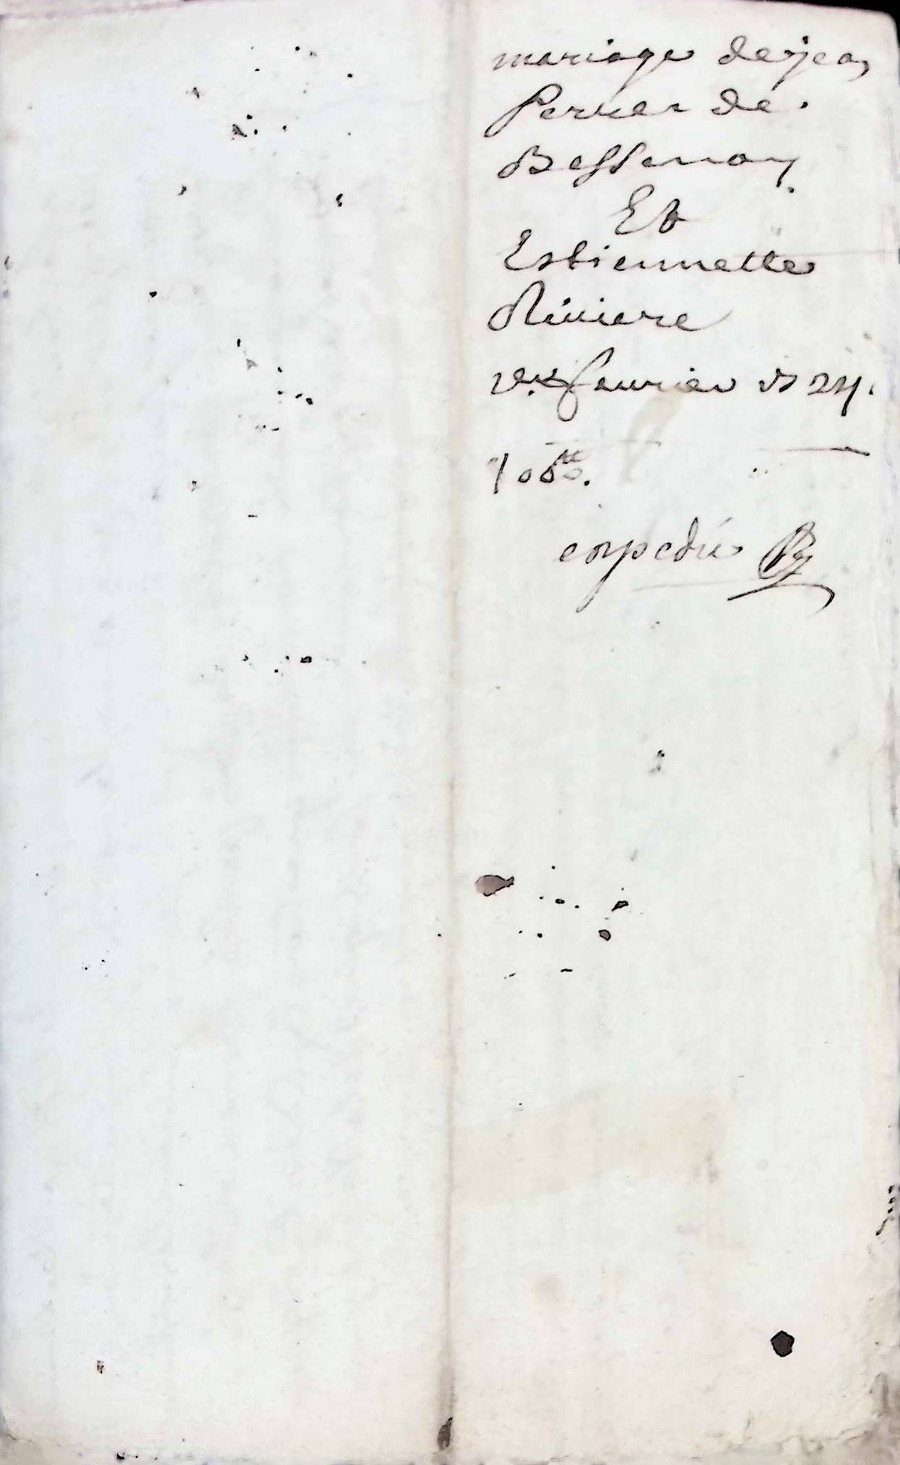 mariage de jean
Perrer de
Bessenay
Et
Estiennette
Riviere
fevrier 24
100tt.
expedié